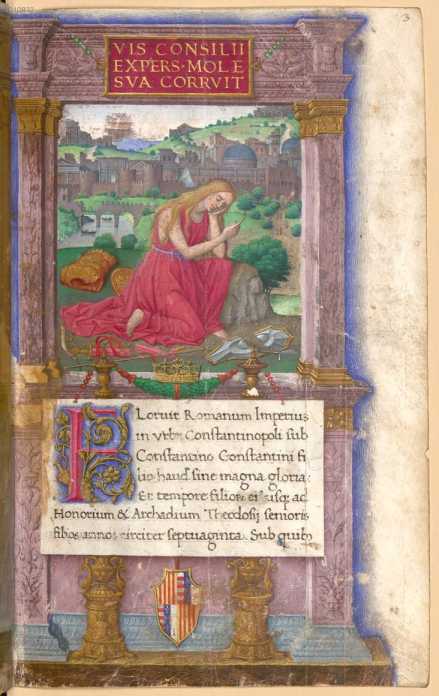 3
VIS CONSILII
EXPERS·MOLE
SVA CORRVIT
FLoruit Romanum Imperium
in vrbe Constantinopoli sub
Constantino Constantini fi
lio haud sine magna gloria:
Et tempore filior, ei, usq, ad
Honorium & Archadium Theodosij senioris
filios annos circiter septuaginta. Sub quib,